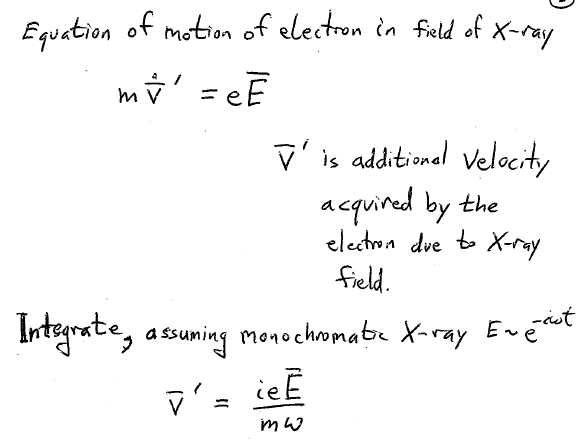 Equation of motion of electron in field of X-ray
m v̇̄' = e E̅
v̅' is additional velocity
acquired by the
electron due to X-ray
field.
Integrate, assuming monochromatic X-ray E ~ e^{-iωt}
v̅' = ieE̅ / mω